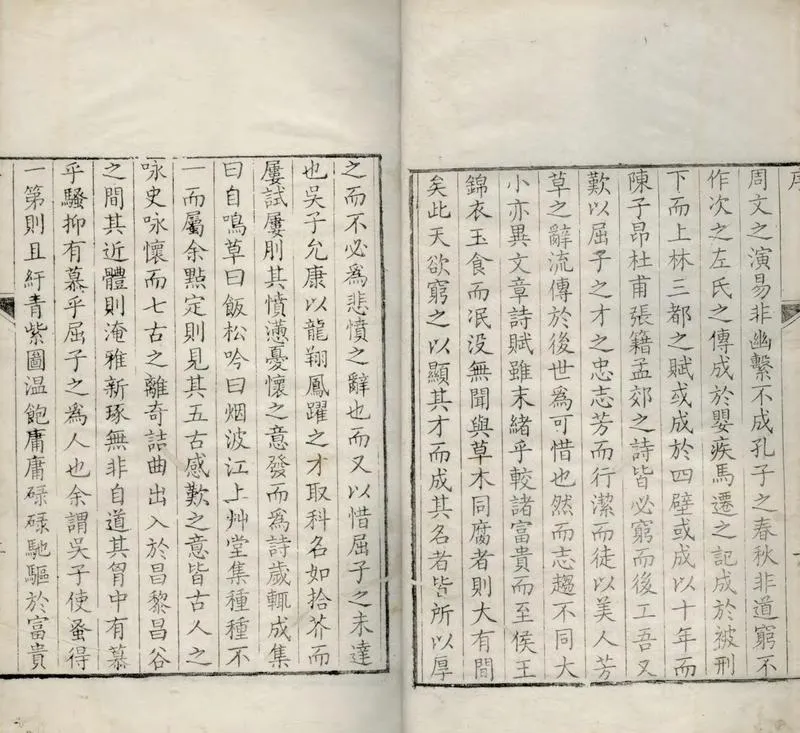 序
周文之演易非幽繫不成孔子之春秋非道窮不
作次之左氏之傳成於嬰疾馬遷之記成於被刑
下而上林三都之賦或成於四壁或成以十年而
陳子昂杜甫張籍孟郊之詩皆必窮而後工吾又
歎以屈子之才之忠志芳而行潔而徒以美人芳
草之辭流傳於後世為可惜也然而志趨不同大
小亦異文章詩賦雖末緒乎較諸富貴而至侯王
錦衣玉食而冺没無聞與草木同腐者則大有間
矣此天欲窮之以顯其才而成其名者皆所以厚
之而不必為悲憤之辭也而又以惜屈子之未達
也吳子允康以龍翔鳳躍之才取科名如拾芥而
屢試屢刖其憤懣憂懷之意發而為詩歲輒成集
曰自鳴草曰飯松吟曰烟波江上艸堂集種種不
一而屬余點定則見其五古感歎之意皆古人之
咏史咏懷而七古之離奇詰曲出入於昌黎昌谷
之間其近體則淹雅新琢無非自道其胷中有慕
乎騷抑有慕乎屈子之為人也余謂吳子使蚤得
一第則且紆青紫圖温飽庸庸碌碌馳驅於富貴